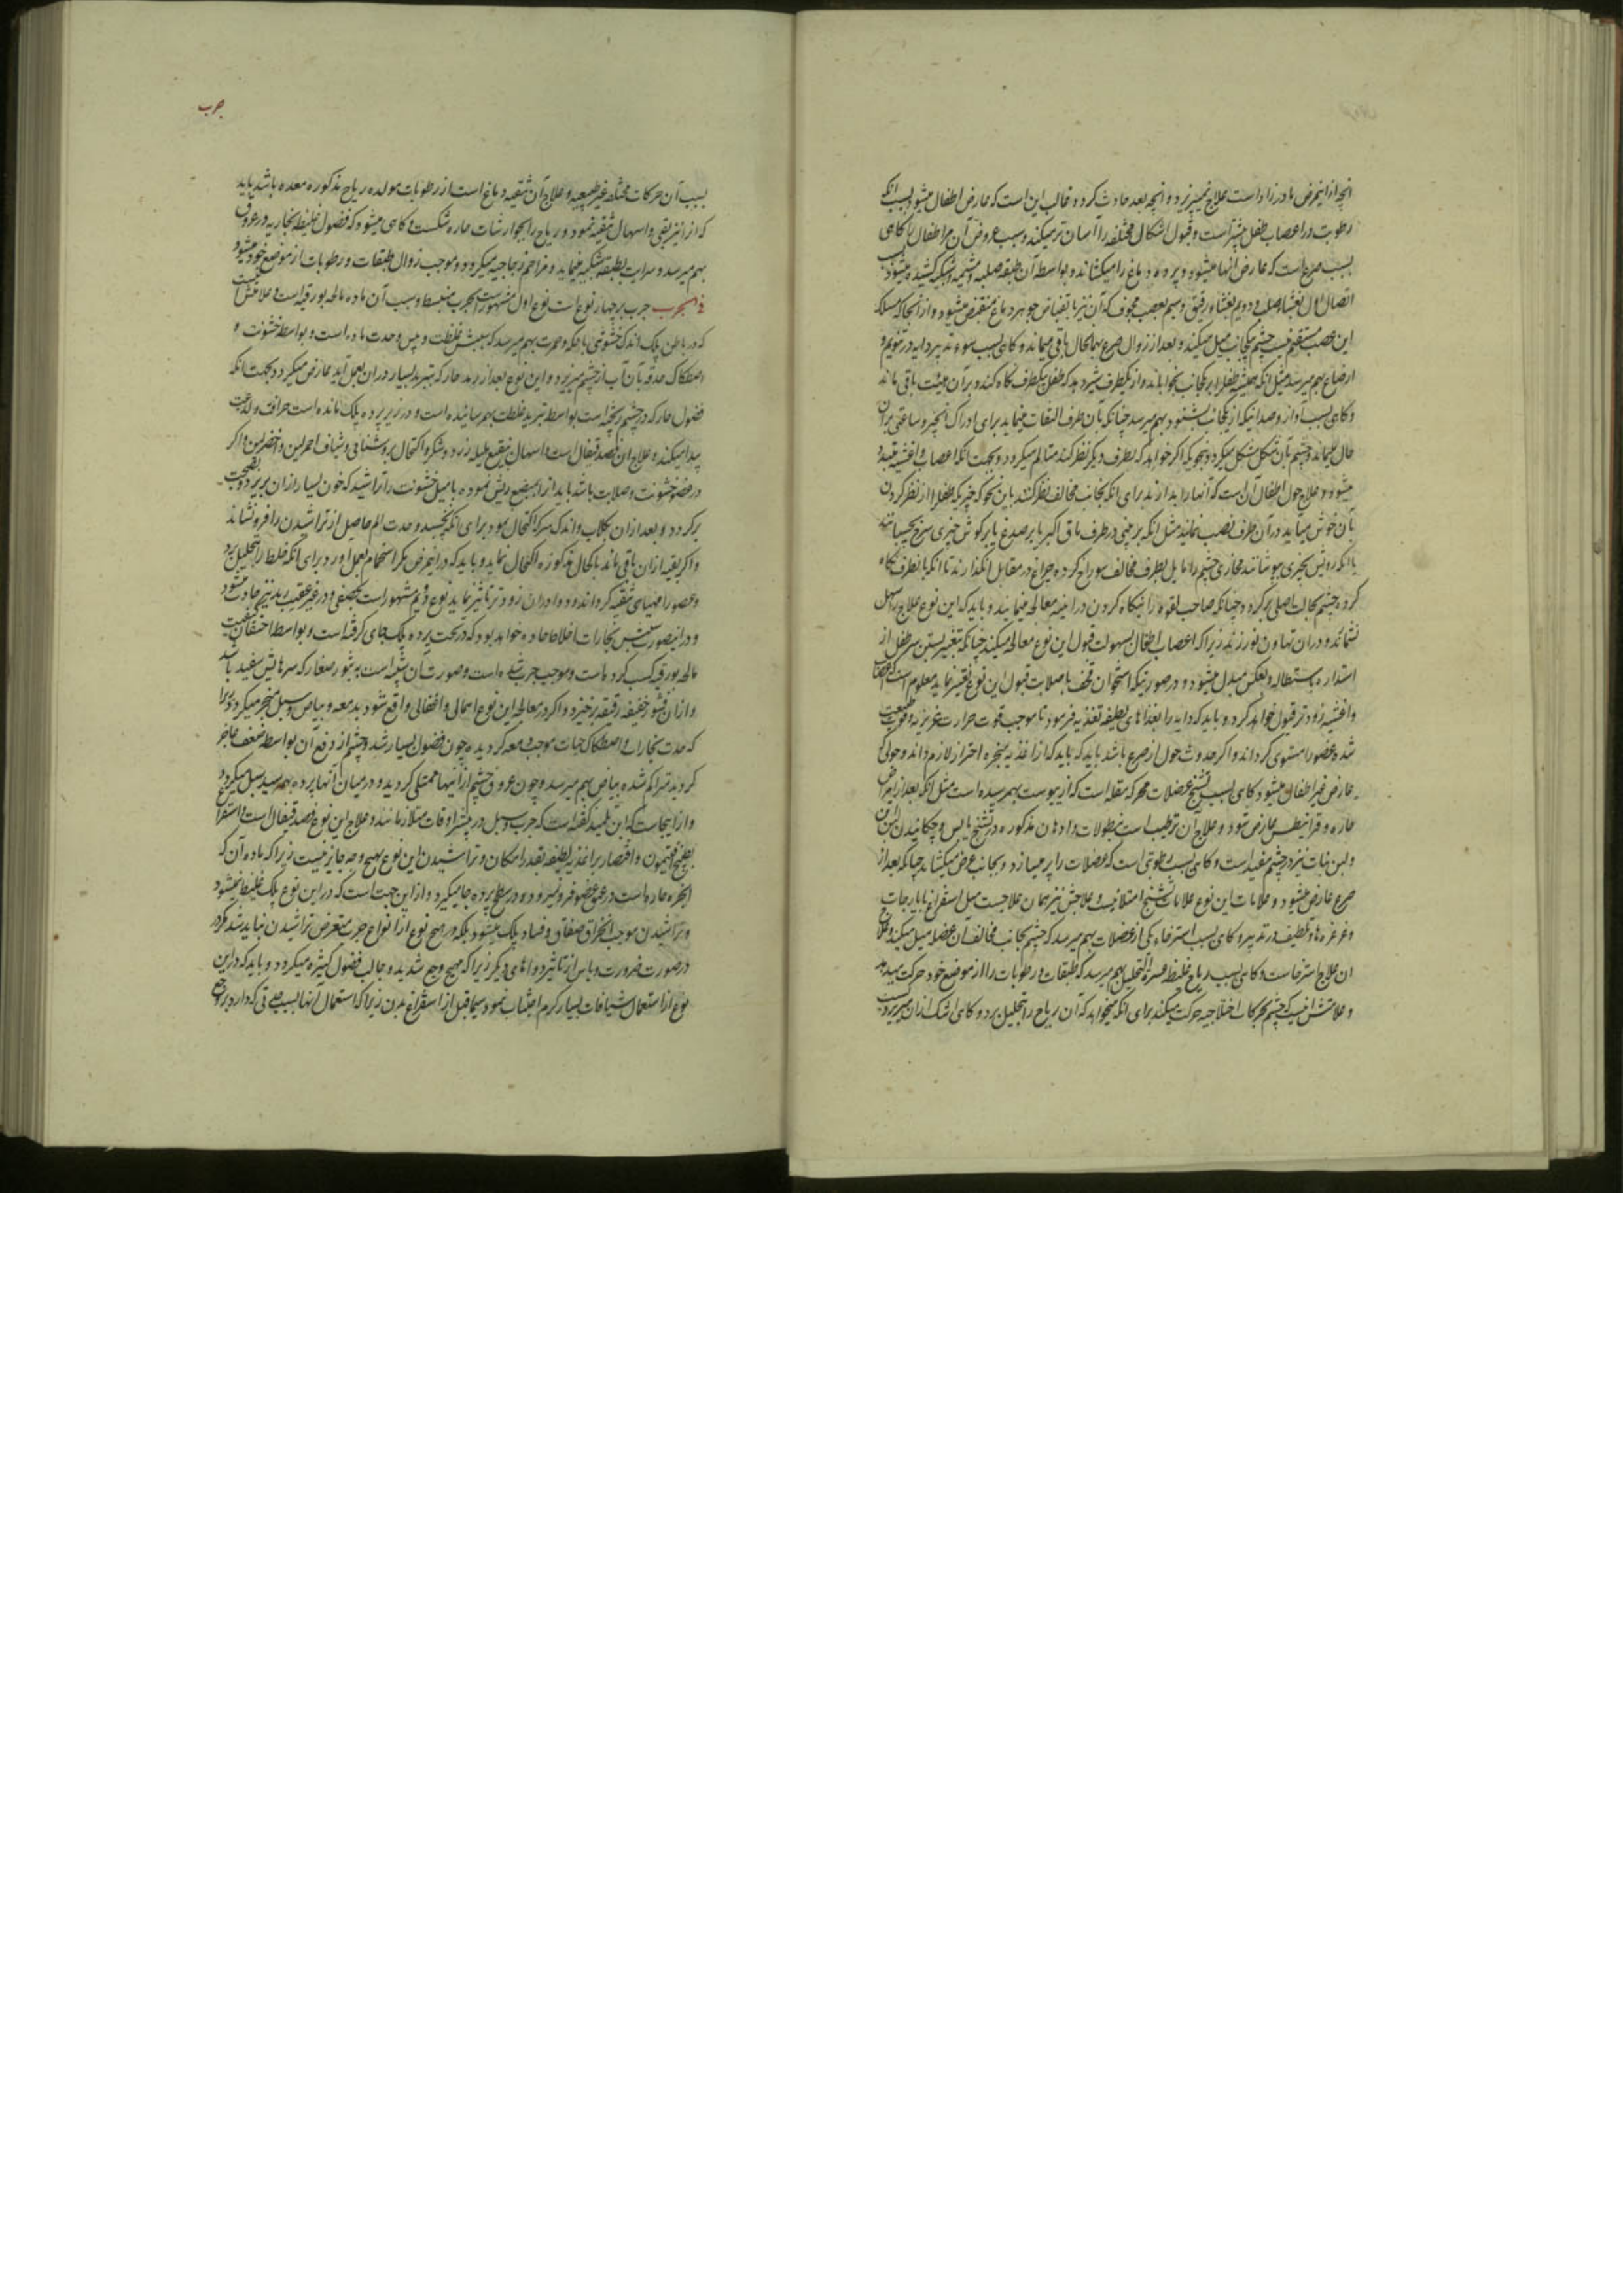 انچه ازاینمرض مادرزاد است علاج نمیپزیرد و انچه بعد حادث کردد غالب این است که عارض اطفال میشود بسبب انکه
رطوبت در اعصاب طفل بیشتر است و قبول اشکال مختلفه را آسان تر میکند و سبب عروض آن مر اطفال را کاهی
بسبب صرع است که عارض انها میشود و پرده دماغ را میکشاند و بواسطه آن طبقه صلبیه و مشیمیه و شبکیه کشیده میشود
اتصال اول بغشاء صلب و دویم بغشاء رقیق و سیم بعصب مجوف که آن نیز بانقباض جوهر دماغ منقبض میشود و از انجا که مسلک
این عصب مستقیم نیست چشم بیکجانب میل میکند و بعد از زوال صرع بهمانحال باقی میماند و کاهی بسبب سوء تدبیر دایه در تنویم و
ارضاع بهم میرسد مثل انکه همیشه طفل را بر یکجانب بخواباند و از یکطرف شیر دهد که طفل بیکطرف نکاه کند و بر آن هیئت باقی ماند
و کاهی بسبب اواز و صدائیکه از یکجانب بشنود بهم میرسد چنانکه بآن طرف التفات مینماید برای ادراک انچیز و ساعتی بر آن
حال میماند و چشم بآن شکل متشکل میکردد بنحویکه اکر خواهد که بطرف دیکر نظر کند متالم میکردد و بجهت انکه اعصاب و اغشیه
میشود و علاج حول اطفال آن است که آنها را بدارند برای انکه بجانب مخالف نظر کنند باین نحو که چیزیکه طفل را از نظر کردن
بآن خوش میآید در آن طرف نصب نمایند مثل انکه بر بینی در طرف ماق اکبر یا بر صدغ یا بر کوش چیزی سرخ بچسبانند
یا انکه رویش بچیزی بپوشانند محاذی چشم را مایل بطرف مخالف سوراخ کرده چراغ در مقابل آنکذارند تا انکه بانطرف نکاه
کرده چشم بحالت اصلی برکردد چنانکه صاحب لقوه را بنکاه کردن در ائینه معالجه مینمایند و باید که این نوع علاج را سهل
نشمانند و در ان تهاون نورزند زیرا که اعصاب اطفال بسهولت قبول این نوع معالجه میکند چنانکه بتغییر بستن سر طفل از
استداره باستطاله و بعکس مبدل میشود و در صورتیکه استخوان قحف با صلابت قبول این نوع تغییر نماید معلوم است که اعصاب
و اغشیه زودتر قبول خواهد کرد و باید که دایه را بغذاهای لطیفه تغذیه فرمود تا موجب قوت حرارت غریزیه و قوت طبیعت
شده عضو را مستوی کرداند و اکر حدوث حول از صرع باشد باید که از اغذیه مبخره احتراز لازم داند و حولی که
عارض غیر اطفال میشود کاهی بسبب تشنج عضلات محرکه مقله است که از یبوست بهمرسیده است مثل انکه بعد از امراض
حاره و قرانیطس عارض شود و علاج آن ترطیب است بنطولات و ادهان مذکوره در تشنج یابس و چکانیدن لبن
و لبن نیز در چشم مفید است و کاهی بسبب رطوبتی است که عضلات را پر میسازد و بجانب عرض میکشاند چنانکه بعد از
صرع عارض میشود و علامات این نوع علامات تشنج امتلائیست و علاجش نیز همان علاجیست مثل استفراغ بایارجات
و غرغره ها و تلطیف در تدبیر و کاهی بسبب استرخاء یکی از عضلات بهم میرسد که چشم بجانب مخالف آن عضله میل میکند و علاج
ان علاج استرخاست و کاهی بسبب ریاح غلیظه عسرة التحلیل بهم میرسد که طبقات و رطوبات را از موضع خود حرکت میدهد
و علامتش انست که چشم بحرکات اختلاجیه حرکت میکند برای انکه میخواهد که آن ریاح را بتحلیل برد و کاهی اشک ازان میریزد
جرب
بسبب آن حرکات مختلفه غیر طبیعیه و علاج آن تنقیه دماغ است از رطوبات مولده ریاح مذکوره معده باشد باید
که انرا نیز بقی و اسهال تنقیه نمود و ریاح را بجوارشات حاره شکست و کاهی میشود که فضول غلیظه بخاریه در عروق
بهم میرسد و سرایت بطبقه شبکیه مینماید و مزاحم زجاجیه میکردد و موجب زوال طبقات و رطوبات از موضع خود میشود
فی الجرب جرب بر چهار نوع است نوع اول مشهور است بجرب منبسط و سبب آن ماده مالحه بورقیه است و علامتش انست
که در باطن پلک اندک خشونتی با حکه و حمرت بهم میرسد که سببش غلظت و یبس و حدت ماده است و بواسطه خشونت و
اصطکاک حدقه بآن آب از چشم میریزد و این نوع بعد از رمد حار که تبرید بسیار در ان بعمل آید عارض میکردد بجهت انکه
فضول حار که در چشم ریخته است بواسطه تبرید غلظت بهمرسانیده است و در زیر پرده پلک مانده است حرافت و لذعیت
پیدا میکند و علاج ان فصد قیفال است و اسهال بنقیع هلیله زرد و شکر و اکتحال بروشنائی و شیاف احمر لین و اخضر لین و اکر
در عضو خشونت و صلابت باشد باید از ان بمبضع ریش نموده یا میل خشونت را تراشید که خون بسیار ازان بریزد و بصحت
برکردد و بعد ازان بکلاب و اندک سرکه اکتحال نمود برای انکه نچسبد و حدت الم حاصل از تراشیدن را فرو نشاند
و اکر بقیه ازان باقی ماند باکحال مذکوره اکتحال نماید و باید که در اینمرض مکرر استحمام بعمل اورد برای انکه خلط را بتحلیل برد
و عضو را مهیای تنقیه کرداند و دوا در ان زودتر تاثیر نماید نوع دویم مشهور است بحصفی و در غیر عقیب رمد نیز حادث شود
و در اینصورت سببش بخارات اخلاط حاده خواهد بود که در تحت پرده پلک جای کرفته است و بواسطه احتقان کیفیت
مالحه بورقیه کسب کرده است و موجب جرب شده است و صورت ان شبیه است به بثور صغار که سرهایش سفید باشد
و ازان قشور خفیفه رقیقه برخیزد و اکر در معالجه این نوع اهمالی و اغفالی واقع شود بدمعه و بیاض و سبل منجر میکردد زیرا
که حدت بخارات و اصطکاک حبات موجب دمعه کردیده چون فضول بسیار شد و چشم از دفع آن بواسطه ضعف عاجز
کردید متراکم شده بیاض بهم میرسد و چون عروق چشم از اینها ممتلی کردید و در میان آنها پرده بهمرسید سبل میکردد
و از اینجاست که ابن تلمیذ کفته است که جرب و سبل در بیشتر اوقات متلازمانند و علاج این نوع فصد قیفال است و استفراغ
بطبیخ افتیمون و اقتصار بر اغذیه لطیفه بقدر امکان و تراشیدن این نوع بهیچ وجه جایز نیست زیرا که ماده آن که
ابخره حاده است در عمق عضو فرو میرود و در سطح پرده جا میکیرد و ازاین جهت است که در این نوع پلک غلیظ نمیشود
و تراشیدن موجب انخراق صفاق و فساد پلک میشود بلکه در هیچ نوع از انواع جرب متعرض تراشیدن نباید شد مکر در
درصورت ضرورت و یاس از تاثیر دواهای دیکر زیرا که مهیج وجع شدید و جالب فضول کثیره میکردد و باید که در این
نوع از استعمال شیافات بسیار کرم اجتناب نمود سیما قبل از استفراغ بدن زیرا که استعمال آنها بسبب حدتی که دارد بر وجع